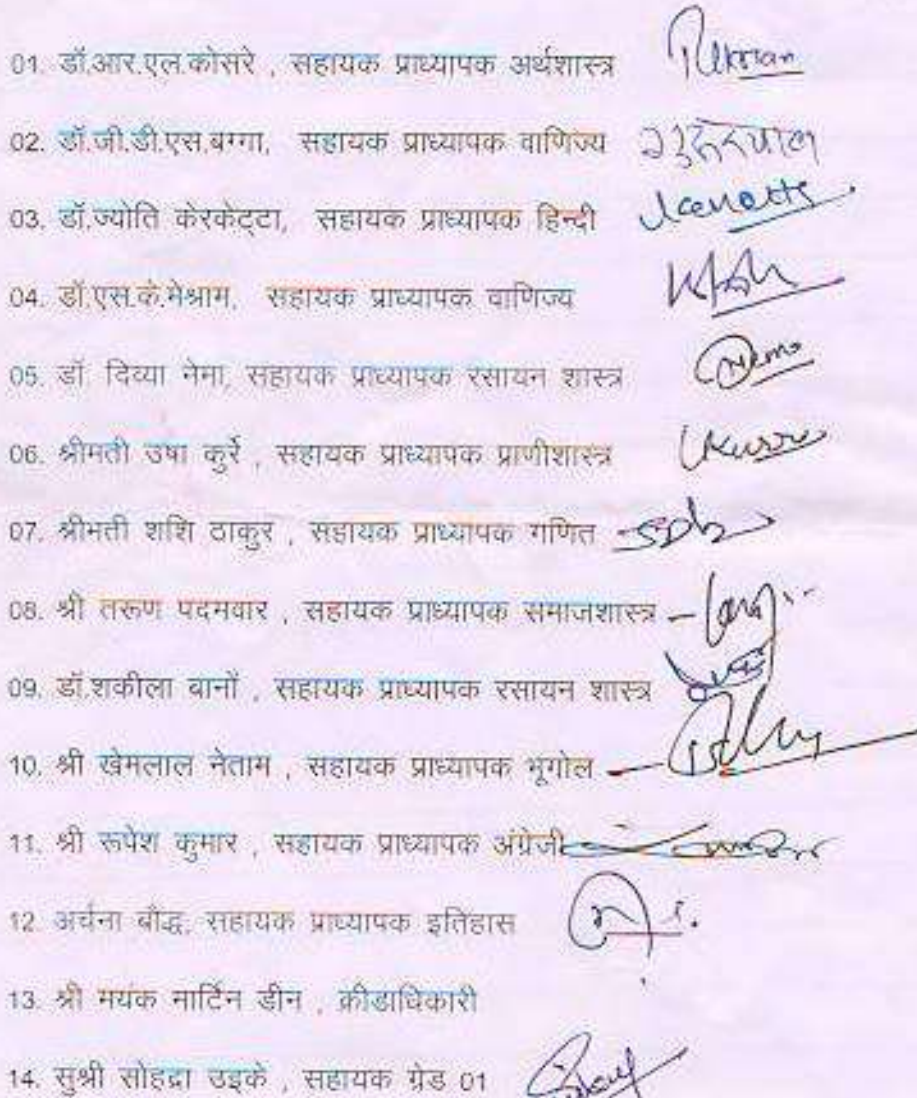 01. डॉ.आर.एल.कोसरे , सहायक प्राध्यापक अर्थशास्त्र
02. डॉ.जी.डी.एस.बग्गा, सहायक प्राध्यापक वाणिज्य
03. डॉ.ज्योति केरकेट्टा, सहायक प्राध्यापक हिन्दी
04. डॉ.एस.के.मेश्राम, सहायक प्राध्यापक वाणिज्य
05. डॉ. दिव्या नेमा, सहायक प्राध्यापक रसायन शास्त्र
06. श्रीमती उषा कुर्रे , सहायक प्राध्यापक प्राणीशास्त्र
07. श्रीमती शशि ठाकुर , सहायक प्राध्यापक गणित
08. श्री तरूण पदमवार , सहायक प्राध्यापक समाजशास्त्र
09. डॉ.शकीला बानों , सहायक प्राध्यापक रसायन शास्त्र
10. श्री खेमलाल नेताम , सहायक प्राध्यापक भूगोल
11. श्री रूपेश कुमार , सहायक प्राध्यापक अंग्रेजी
12. अर्चना बौद्ध, सहायक प्राध्यापक इतिहास
13. श्री मयंक मार्टिन डीन , क्रीडाधिकारी
14. सुश्री सोहद्रा उइके , सहायक ग्रेड 01